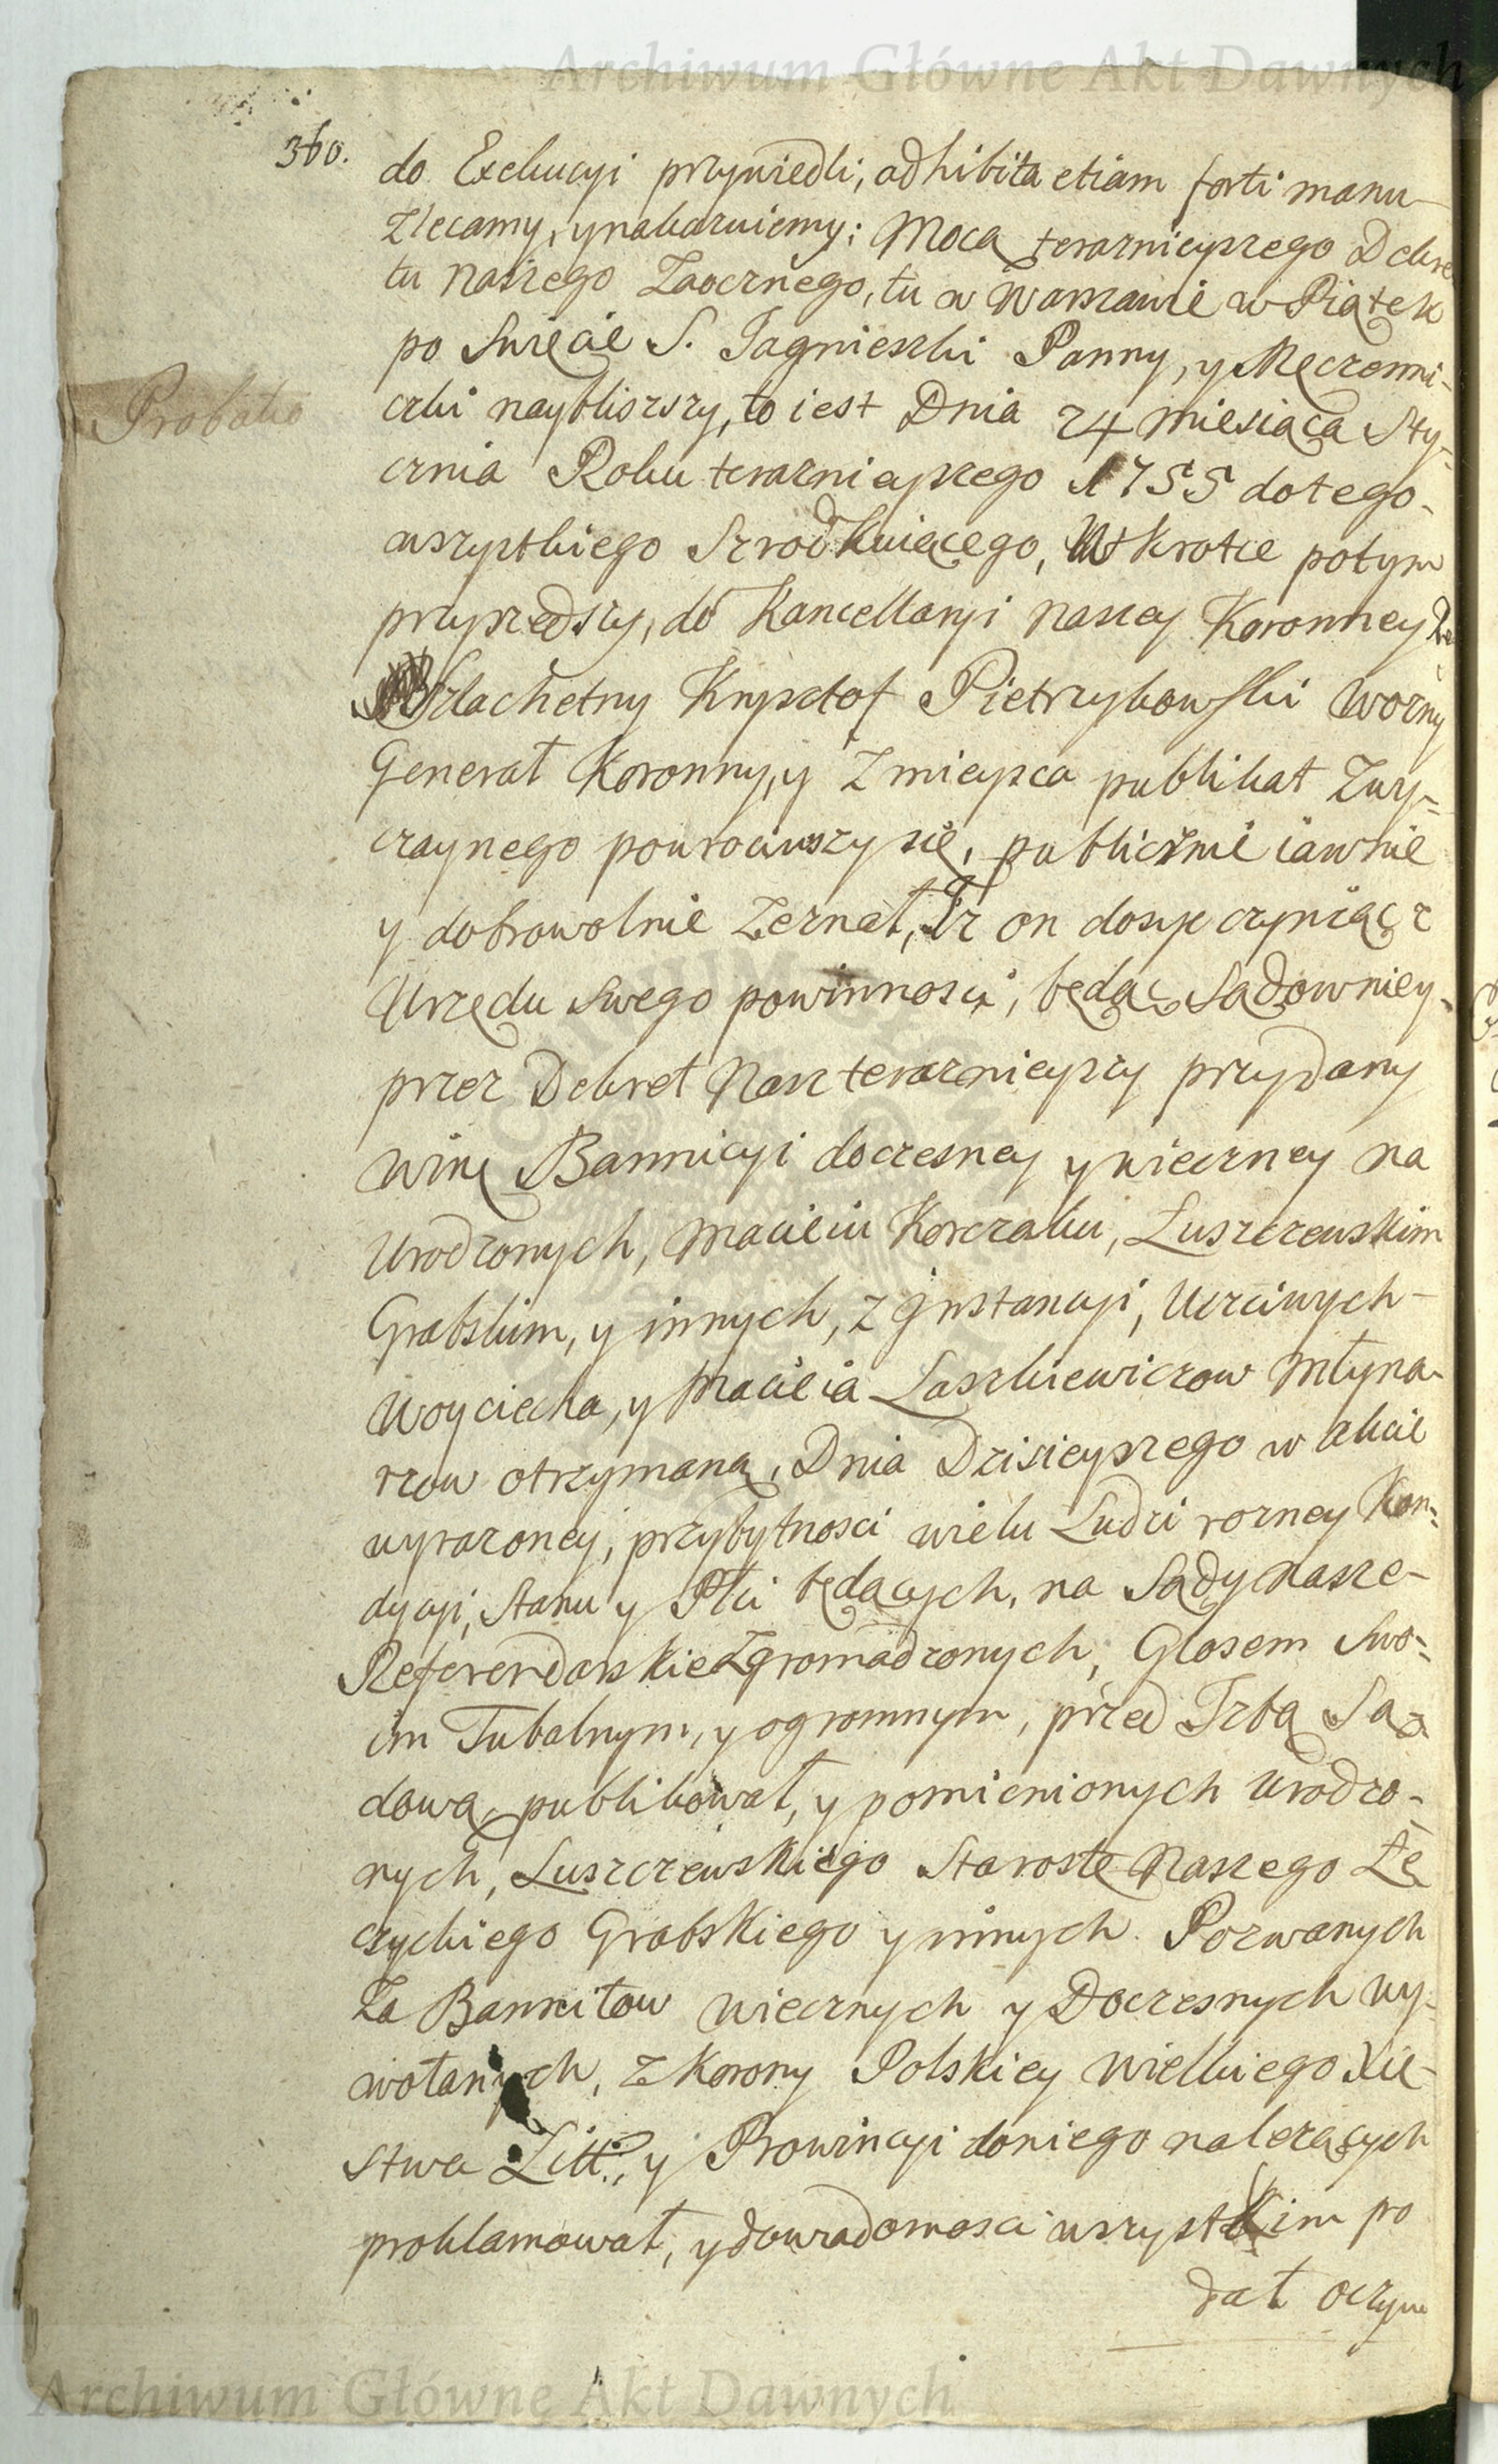 Archiwum Główne Akt Dawnych
360.
do Exekucyi przywiedli, adhibita etiam forti manu
zlecamy, ynakazuiemy; Mocą teraznieyszego Dekre
tu naszego Zaocznego, tu w Warszawie w Piątek
po Swięcie S. Jagnieszki Panny, y Męczenni-
czki naybliszszy, to iest Dnia 24 Miesiąca Sty-
Probatio
cznia Roku teraznieyszego 1755 dotego
wszystkiego Szrodkuiącego, Wkrotce potym
przyszedszy, do Kancellaryi naszey Koronney
Szlachetny Krysztof Pietrzykowski Wozny
Generał Koronny, y z mieysca publikat Zwy-
czaynego powrociwszy się, publicznie iawnie
y dobrowolnie Zeznał, Iz on dosyc czyniąc z
Urzędu Swego powinnosci, będąc Sądowniey
przez Dekret Nasz teraznieyszy przydany
Winę Bannicyi doczesney y wieczney na
Urodzonych, Macieiu Korczaku, Łuszczewskim
Grabskim, y innych, z Jnstancyi, Uczciwych
Woyciecha, y Macieia Laszkiewiczow Młyna-
rzow otrzymaną, Dnia Dzisieyszego w Akcie
wyrazoney, przybytnosci wielu Ludzi rozney Kon-
dycyi, Stanu y Płci będących, na Sądy nasze
Referendarskie Zgromadzonych, Głosem Swo-
im Tubalnym, y ogromnym, przed Izbą Są-
dową, publikował, y pomienionych Urodzo-
nych, Luszczewskiego Starostę Naszego Łę
czyckiego Grabskiego y innych Pozwanych
Za Bannitow wiecznych y Doczesnych wy-
wołanych, z Korony Polskiey Wielkiego Xię-
stwa Litt:, y Prowincyi doniego nalezących
proklamował, y dowiadomosci wszystkim po
dał oczym
Archiwum Główne Akt Dawnych